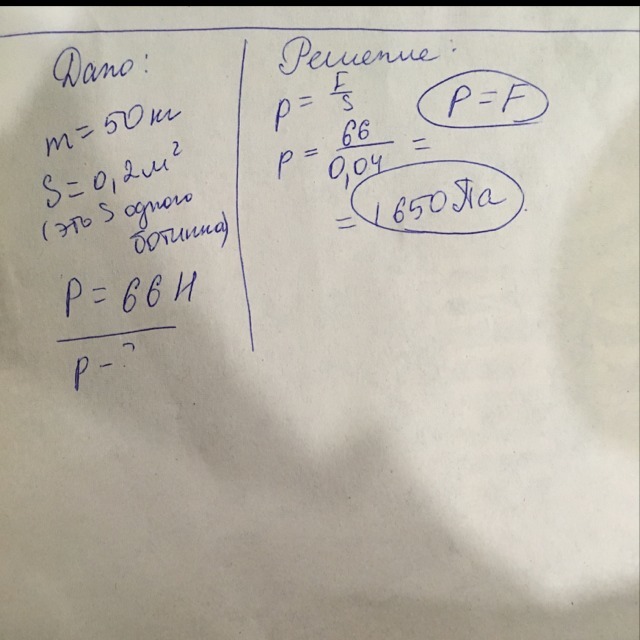 Дано:
m = 50 кг
S = 0,2 м²
(это S одного
ботинка)
P = 66 Н
p - ?
Решение:
p = F/S
P = F
p = 66/0,04 =
= 1650 Па